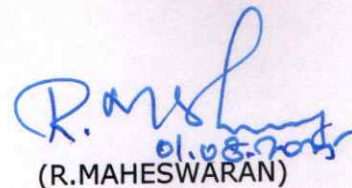 01.08.2025
(R.MAHESWARAN)